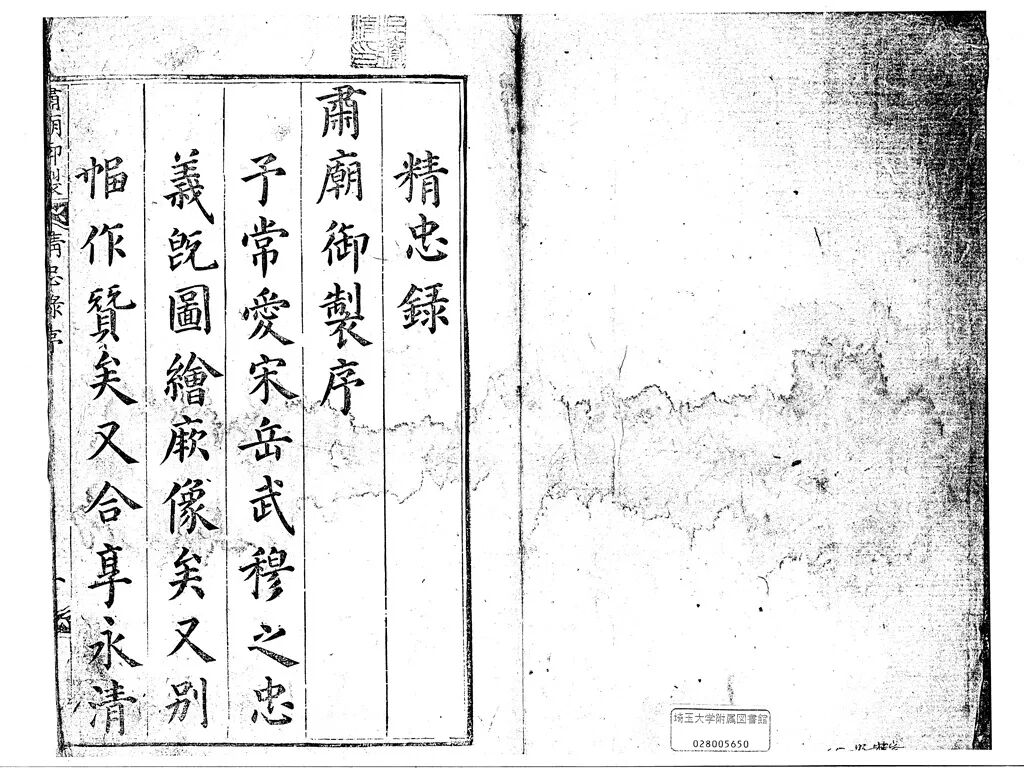 精忠録
肅廟御製序
予常愛宋岳武穆之忠
義旣圖繪厥像矣又別
幅作贊矣又合享永清
肅廟御製
精忠錄序
埼玉大学附属図書館
028005650